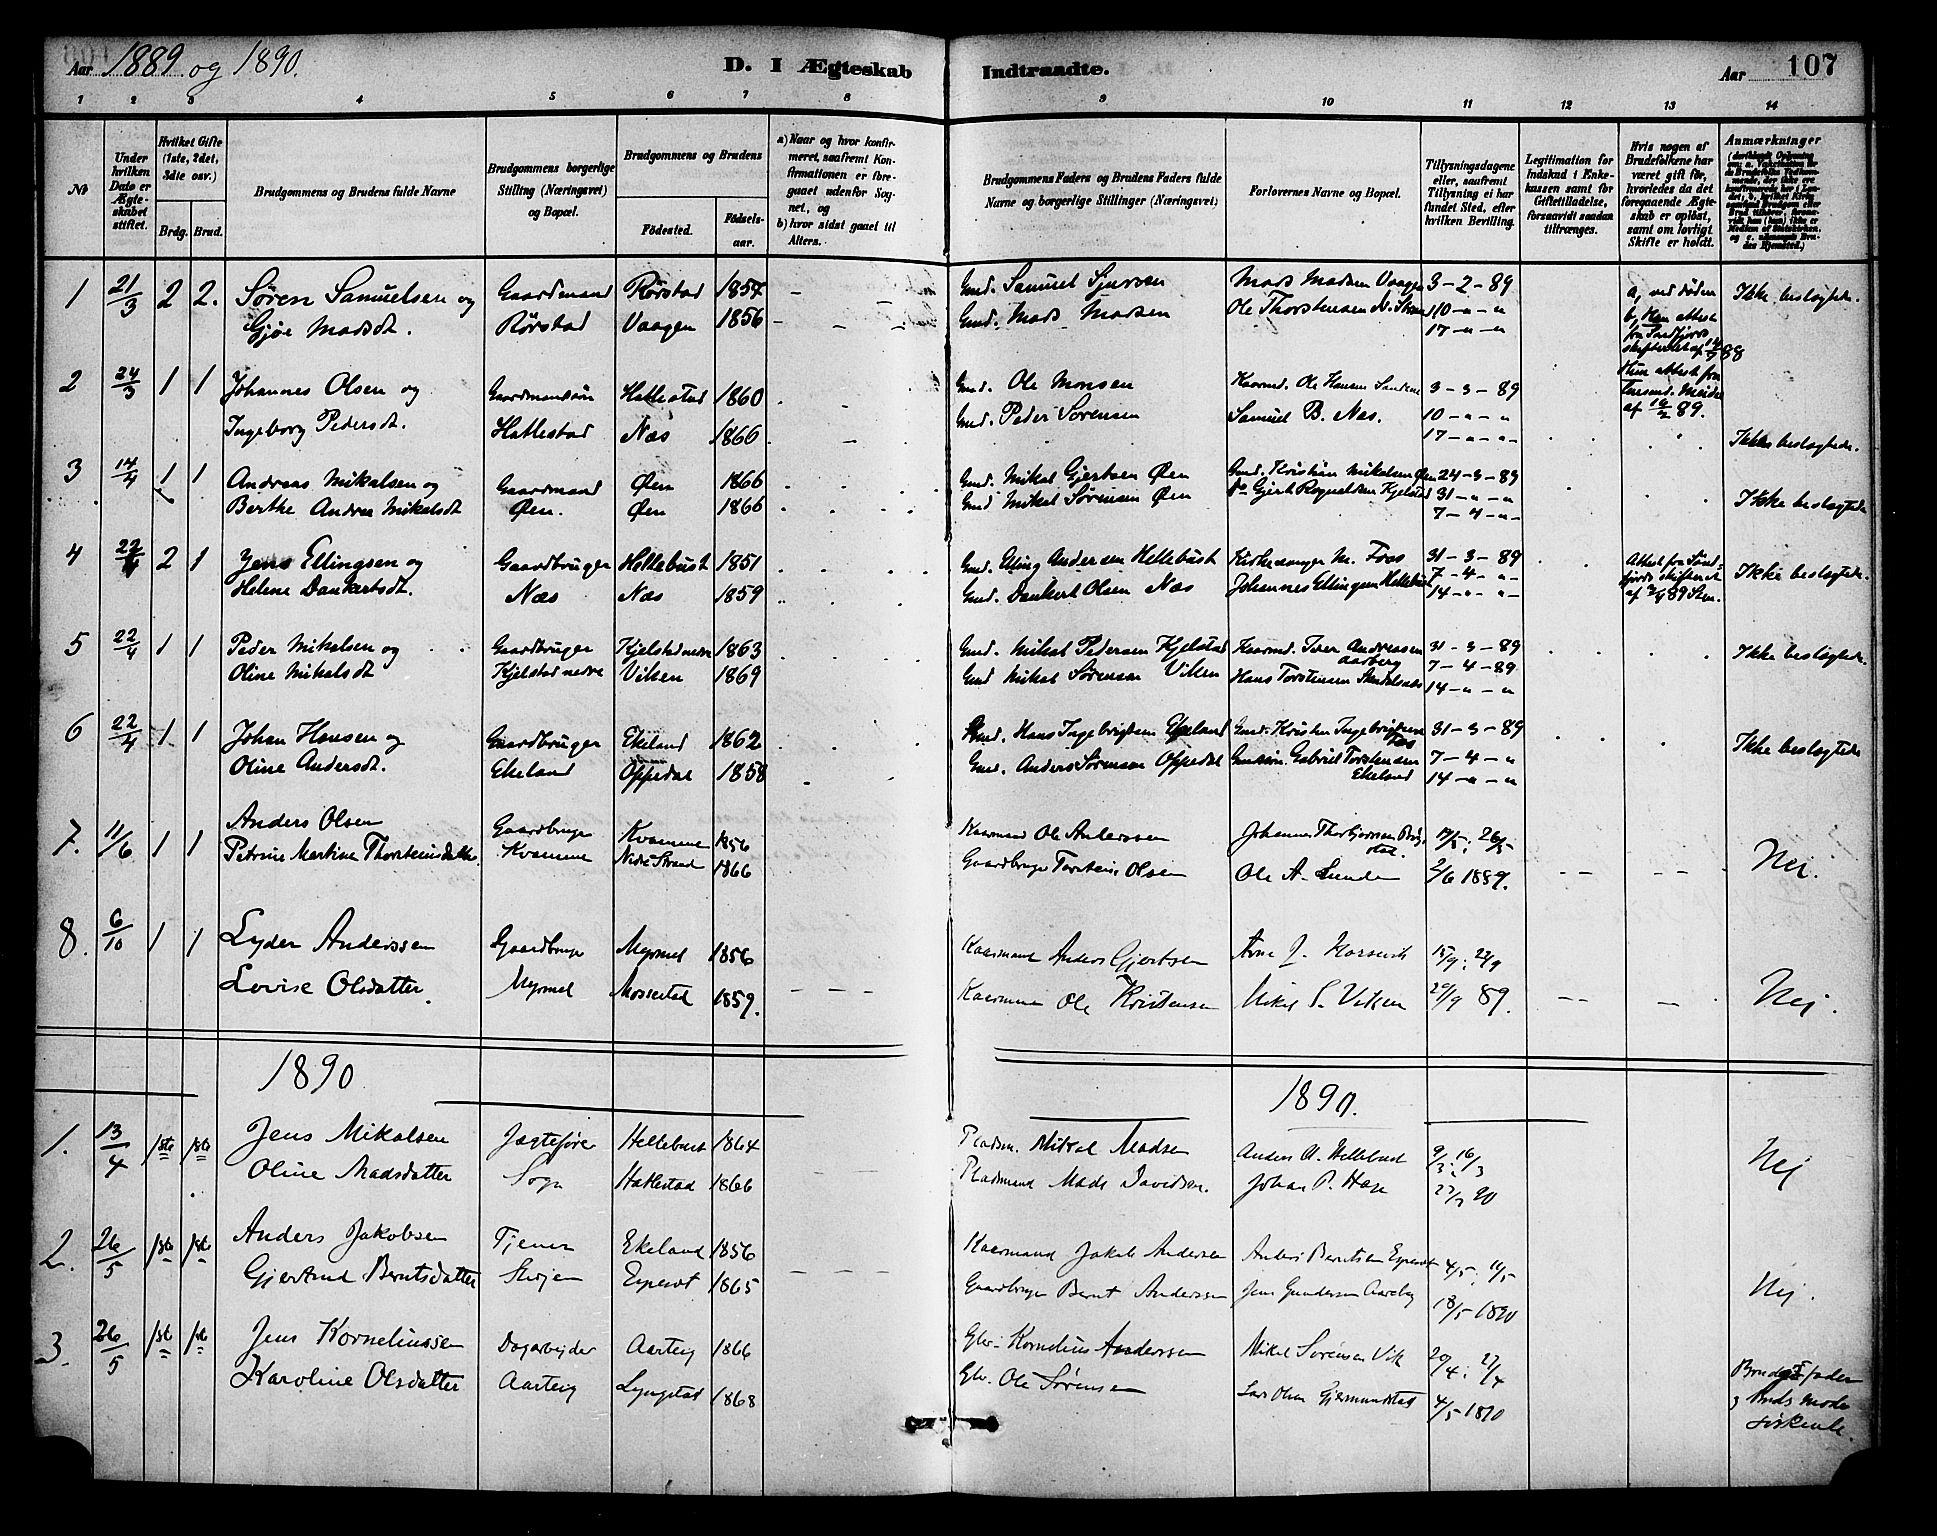 Aar 1889 og 1890.
D. I Ægteskab Indtraadte.
Aar 107
1 2 3 4 5 6 7 8 9 10 11 12 13 14
№
Under hvilken Dato er Ægteskabet stiftet.
Hvilket Gifte (1ste, 2det, 3die osv.)
Brdg. Brud.
Brudgommens og Brudens fulde Navne
Brudgommens borgerlige Stilling (Næringsvei) og Bopæl.
Brudgommens og Brudens
Fødested. Fødselsaar.
a) Naar og hvor konfirmeret, saafremt Konfirmationen er foregaaet udenfor Sognet, og
b) hvor sidst gaaet til Alters.
Brudgommens Faders og Brudens Faders fulde Navne og borgerlige Stillinger (Næringsvei)
Forlovernes Navne og Bopæl.
Tillysningsdagene eller, saafremt Tillysning ei har fundet Sted, efter hvilken Bevilling.
Legitimation for Indskud i Enkekassen samt for Giftetilladelse, forsaavidt saadan tiltrænges.
Hvis nogen af Brudefolkene har været gift før, hvorledes da det foregaaende Ægteskab er opløst, samt om lovligt Skifte er holdt.
Anmærkninger
1 21/3 2 2. Søren Samuelsen og Gaardmand Rørstad 1857 Gmd. Samuel Sjursen Mads Madsen Vaagen 3-2-89 a, ved døden Ikke beslægtede.
Gjøe Madsdt. Rørstad Vaagen 1856 Gmd. Mads Madsen Ole Thorstensen 10-"-" b,
17-"-"
2 24/3 1 1 Johannes Olsen og Gaardmandssøn Hatlestad 1860 Gmd. Ole Monsen Kaarmd. Ole Hansen Sandene 3-3-89
Ingeborg Pedersdt. Hatlestad Næs 1866 Gmd. Peder Sørensen Samuel B. Næs. 10-"-" af 89.
17-"-"- Ikke beslægtede.
3 14/4 1 1 Andreas Mikalsen og Gaardmand Øen 1866 Gmd. Mikal Gjertsen Øen Gmd. Kristian Mikalsen Øen 24-3-89
Berthe Andrea Mikalsdt Øen. Øen 1866 Gmd Mikal Sørensen Øen do Gjert Rognaldsen Kjelstad 31-"-" Ikke beslægtede
7-4-"-
4 22/4 2 1 Jens Ellingsen og Gaardbruger Hellebust 1851 Gmd. Elling Andersen Hellebust Kirkesanger M. Foss 31-3-89 Attest fra Sønd-
Helene Dankertsdt. Næs Næs 1859 Gmd. Dankert Olsen Næs Johannes Ellingsen Hellebust 7-4-"- fjords skifteret Ikke beslægtede.
14-"-"-
5 22/4 1 1 Peder Mikalsen og Gaardbruger Kjelstad nedre 1863 Gmd. Mikal Pedersen Kjelstad Kaarmd. Iver Andreassen Aarberg 31-3-89
Oline Mikalsdt Kjelstad nedre Viksen 1869 Gmd Mikal Sørensen Viksen Hans Torstensen 7-4-89 Ikke beslægtede.
14-"-"
6 22/4 1 1 Johan Hansen og Gaardbruger Ekeland 1862 Gmd. Hans Ingebrigtsen Ekeland Gmd. Kristen Ingebrigtsen Fos 31-3-89
Oline Andersdt. Ekeland Oppedal 1858 Gmd. Anders Sørensen Oppedal Gabriel Torstensen Ekeland 7-4-" Ikke beslægtede
14-"-"
7. 11/6 1 1 Anders Olsen Gaardbruger Kvamme 1856 Kaarmand Ole Anderssen Johannes Thorbjornsen 19/5; 26/5
Petrine Martine Thorsteinsdatter. Kvamme Nedre Strand 1866 Gaardbruger Torstein Olsen Ole A. Lunde 2/6 1889. Nei.
8. 6/10 1 1 Lyder Anderssen Gaardbruger Myrmel 1856 Kaarmand Anders Gjertsen Arne J. 15/9; 22/9
Lovise Olsdatter. Myrmel Mossestad 1859. Kaarmand Ole Kristensen Mikel S. Viksen 29/9 89. Nej.
1890 1890.
1. 13/4 1ste 1ste Jens Mikalsen Jægtefører Hellebust 1864 Pladsm. Mikal Madsen Anders A. Hellebust 9/3; 16/3
Oline Madsdatter Sogn Hatlestad 1866 Pladsmand Mads Davidsen. Johan P. 23/3 90 Nej
2. 26/5 1ste 1ste Anders Jakobsen Tjener Ekeland 1856 Kaarmand Jakob Andersen Anders Berntsen Espeset 4/5; 11/5
Gjertrud Berntsdatter Espeset 1865 Gaardbruger Bernt Anderssen Jens Gundersen Aareberg 18/5 1890 Nej.
3. 26/5 1ste 1ste Jens Korneliussen Dagarbejder Aarteig 1866 Gbr. Kornelius Anderssen Mikel Sørensen Vik 20/4; 27/4
Karoline Olsdatter Aarteig Lyngstad 1868 Gbr. Ole Sørensen Lars Olsen Gjermundstad 4/5 1890 Brudgs fader
og Bruds moder
søskende.